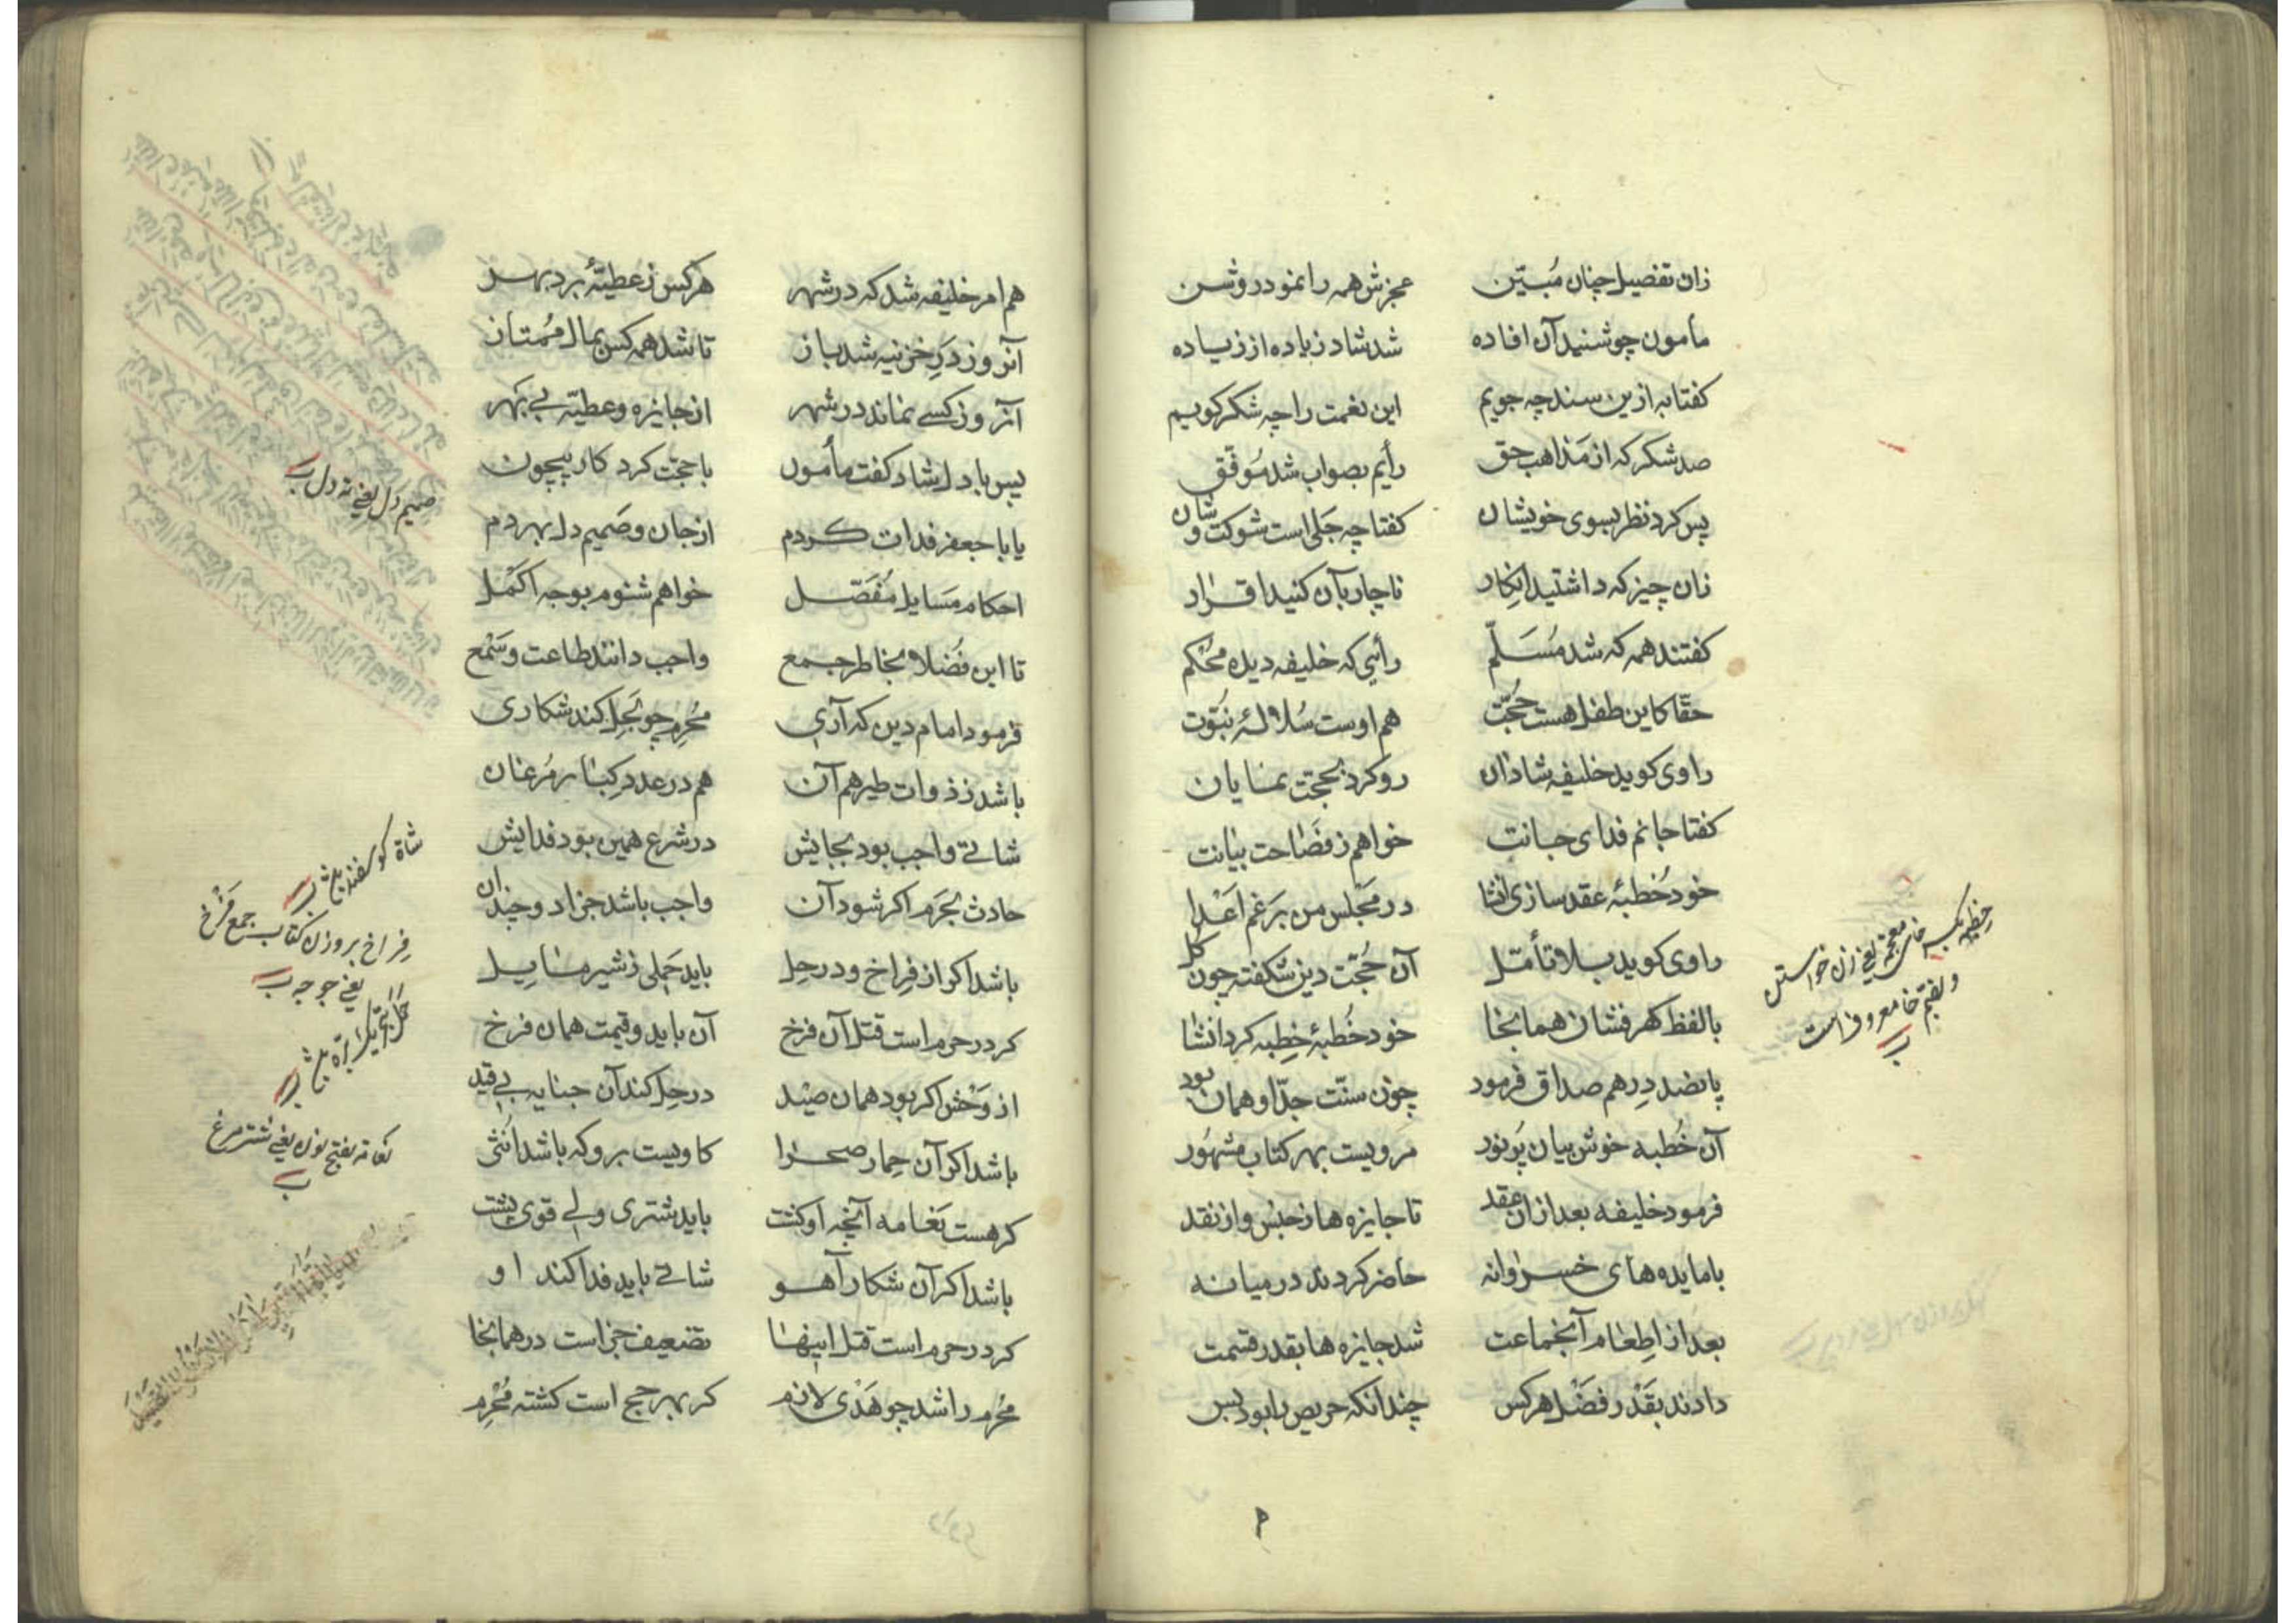 زان تفصیل چنان مُبیّن عجزش همه را نمود روشن
مأمون چو شنید آن افاده شد شاد زیاده از زیاده
کفتا به ازین سند چه جویم این نعمت را چه شکر کویم
صد شکر که از مَذاهب حق رأیم بصواب شد مُوَفّق
پس کرد نظر بسوی خویشان کفتا چه جَلی است شوکت و شان
زان چیز که داشتید انکار ناچار بآن کنید اقرار
کفتند همه که شد مُسَلّم رأیی که خلیفه دیده محُکم
حقّا کاین طفل هست حُجّت هم اوست سُلالهٔ نبُوّت
راوی کوید خلیفه شاذان رو کرد بحجت نمایان
کفتا جانم فدای جانت خواهم ز فَصَاحت بیانت
خود خُطبهٔ عقد سازی انشا در مَجْلس من بَرغم اَعْدا
راوی کوید بلا تأمّل آن حُجّت دین شکفته چون کل
با لفظ کهر فشان همانجا خود خُطبهٔ خِطبه کرد انشا
پانصد دِرهم صداق فرمود چون سنّت جدّ او همان بود
آن خُطبه خوش بیان پُر نور مرویست بهر کتاب مشهُور
فرمود خلیفه بعد ازان عقد تا جایزه ها ز جنس و از نقد
با مایده های خسروانه حاضر کردند در میانه
بعد از اِطعام آنجماعت شد جایزه ها بقدر قسمت
دادند بقَدْر فضْل هرکس چندانکه حریص را بود بس
خِطبه بکسر خاء معجمه یعنی زن خواستن
و بضم خا معروف است
ب
هم امر خلیفه شد که در شهر هرکس ز عطیّهٔ برد بهر
آنروز دَرِ خزینه شد باز تا شد همه کس بمال مُمتاز
آنروز کسے نماند در شهر از جایزه و عطیّه بے بهر
پس با دل شاد کفت مأمون با حجّت کرد کار بیچون
یا با جعفر فدات کردم از جان و صَمیم دل بهر دم
احکام مسایل مُفَصّل خواهم شنوم بوجه اکمَل
تا این فُضَلا بخاطر جمع واجب دانند طاعت و سَمْع
فرمود امام دین که آری مُحْرِم چو بحِل کند شکاری
باشد ز ذوات طیر هم آن هم در عدد کِبار مُرغان
شاتے واجب بود بجایش در شرع همین بود فدایش
حادث بحَرَم اکر شود آن واجب باشد جزا دو چندان
باشد اکر از فِراخ و در حِل باید حَملی ز شیر مایل
کر در حرم است قتل آن فرخ آن باید و قیمت همان فرخ
از وَحْش اکر بود همان صید در حِل کند آن جنایه بی قید
باشد اکر آن حِمار صحرا کاویست برو که باشد اُنثی
کر هست نَعامه آنچه او کشت باید شتری ولے قوی پشت
باشد اکر آن شکار آهو شاتے باید فدا کند او
کر در حرم است قتل اینها تضعیف جزاست در همانجا
مُحْرِم را شد چو هَدْی لازم کر بهر حج است کشته مُحْرِم
صمیم دل یعنی ته دل ب
شاة کوسفند
فِراخ بروزن کتاب جمع فَرْخ
یعنی جوجه ب
نعامه بفتح نون یعنی شترمرغ
ب